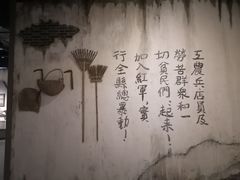 工農兵店員及
勞苦群衆和一
切貧民們，起來！
加入紅軍，實
行全縣總暴動！